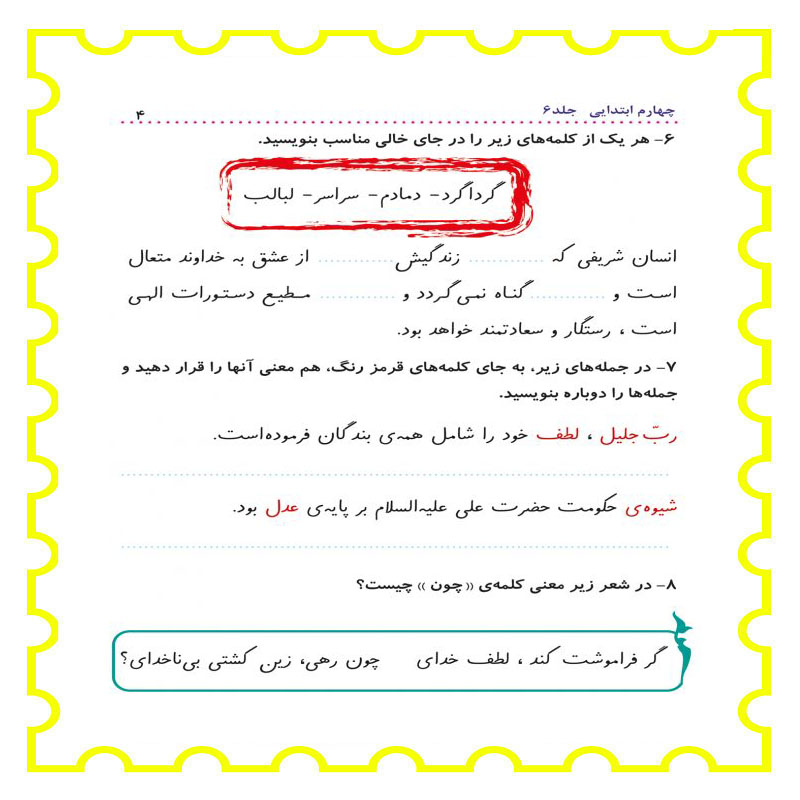 چهارم ابتدایی جلد۶ ۴
۶- هر یک از کلمه‌های زیر را در جای خالی مناسب بنویسید.
گرداگرد- دمادم- سراسر- لبالب
انسان شریفی که ............ زندگیش ............ از عشق به خداوند متعال
است و ............ گناه نمی‌گردد و ............ مطیع دستورات الهی
است ، رستگار و سعادتمند خواهد بود.
۷- در جمله‌های زیر، به جای کلمه‌های قرمز رنگ، هم معنی آنها را قرار دهید و
جمله‌ها را دوباره بنویسید.
ربّ جلیل ، لطف خود را شامل همه‌ی بندگان فرموده‌است.
شیوه‌ی حکومت حضرت علی علیه‌السلام بر پایه‌ی عدل بود.
۸- در شعر زیر معنی کلمه‌ی «چون» چیست؟
گر فراموشت کند ، لطف خدای چون رهی، زین کشتی بی‌ناخدای؟